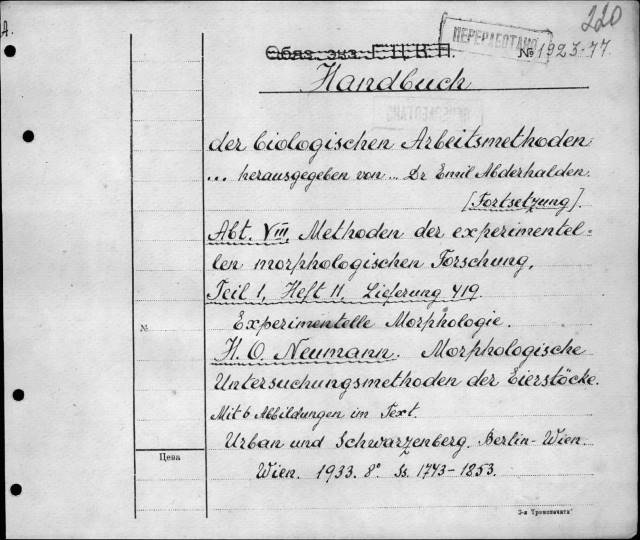 A.
220
ПЕРЕРАБОТАНО
Обяз. экз. Г.Ц.К.П. № 1925-77.
Handbuch
der biologischen Arbeitsmethoden
... herausgegeben von ... Dr Emil Abderhalden.
[Fortsetzung].
Abt. VIII, Methoden der experimentel=
len morphologischen Forschung,
Teil 1, Heft 11, Lieferung 419.
Experimentelle Morphologie.
№
H. O. Neumann. Morphologische
Untersuchungsmethoden der Eierstöcke.
Mit 6 Abbildungen im Text.
Urban und Schwarzenberg. Berlin-Wien.
Цена
Wien. 1933. 8° Ss. 1773-1853.